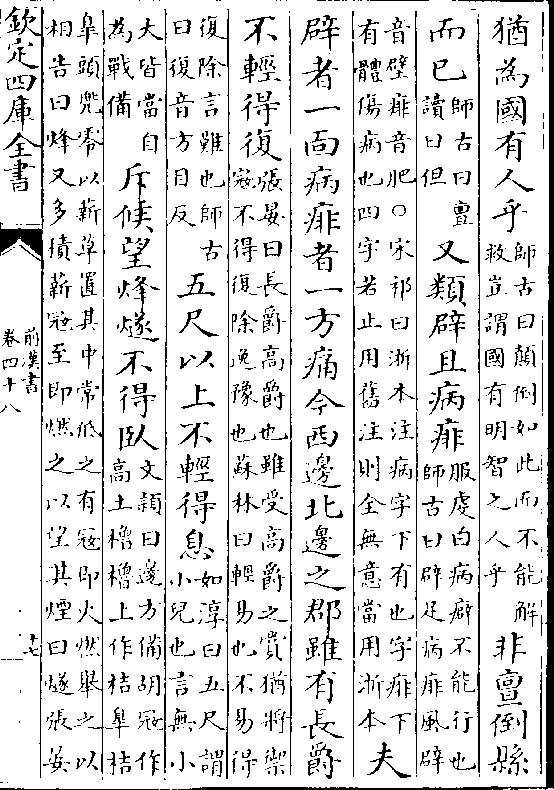 猶為國有人乎師古曰顛倒如此而不能解
救豈謂國有明智之人乎非亶倒縣
而已師古曰亶
讀曰但又類辟且病痱服虔曰病癖不能行也
師古曰辟足病痱風辟
音壁痱音肥○宋祁曰浙本注病字下有也字痱下
有體傷病也四字若止用舊注則全無意當用浙本夫
辟者一面病痱者一方痛今西邊北邊之郡雖有長爵
不輕得復張晏曰長爵高爵也雖受高爵之賞猶將禦
寇不得復除逸豫也蘇林曰輕易也不易得
復除言難也師古
曰復音方目反五尺以上不輕得息如淳曰五尺謂
小兒也言無小
大皆當自
為戰備斥候望烽燧不得臥文穎曰邊方備胡寇作
高土櫓櫓上作桔皐桔
皐頭兜零以薪草置其中常低之有寇即火燃舉之以
相告曰烽又多積薪寇至即燃之以望其煙曰燧張晏
欽定四庫全書
前漢書
卷四十八
十七